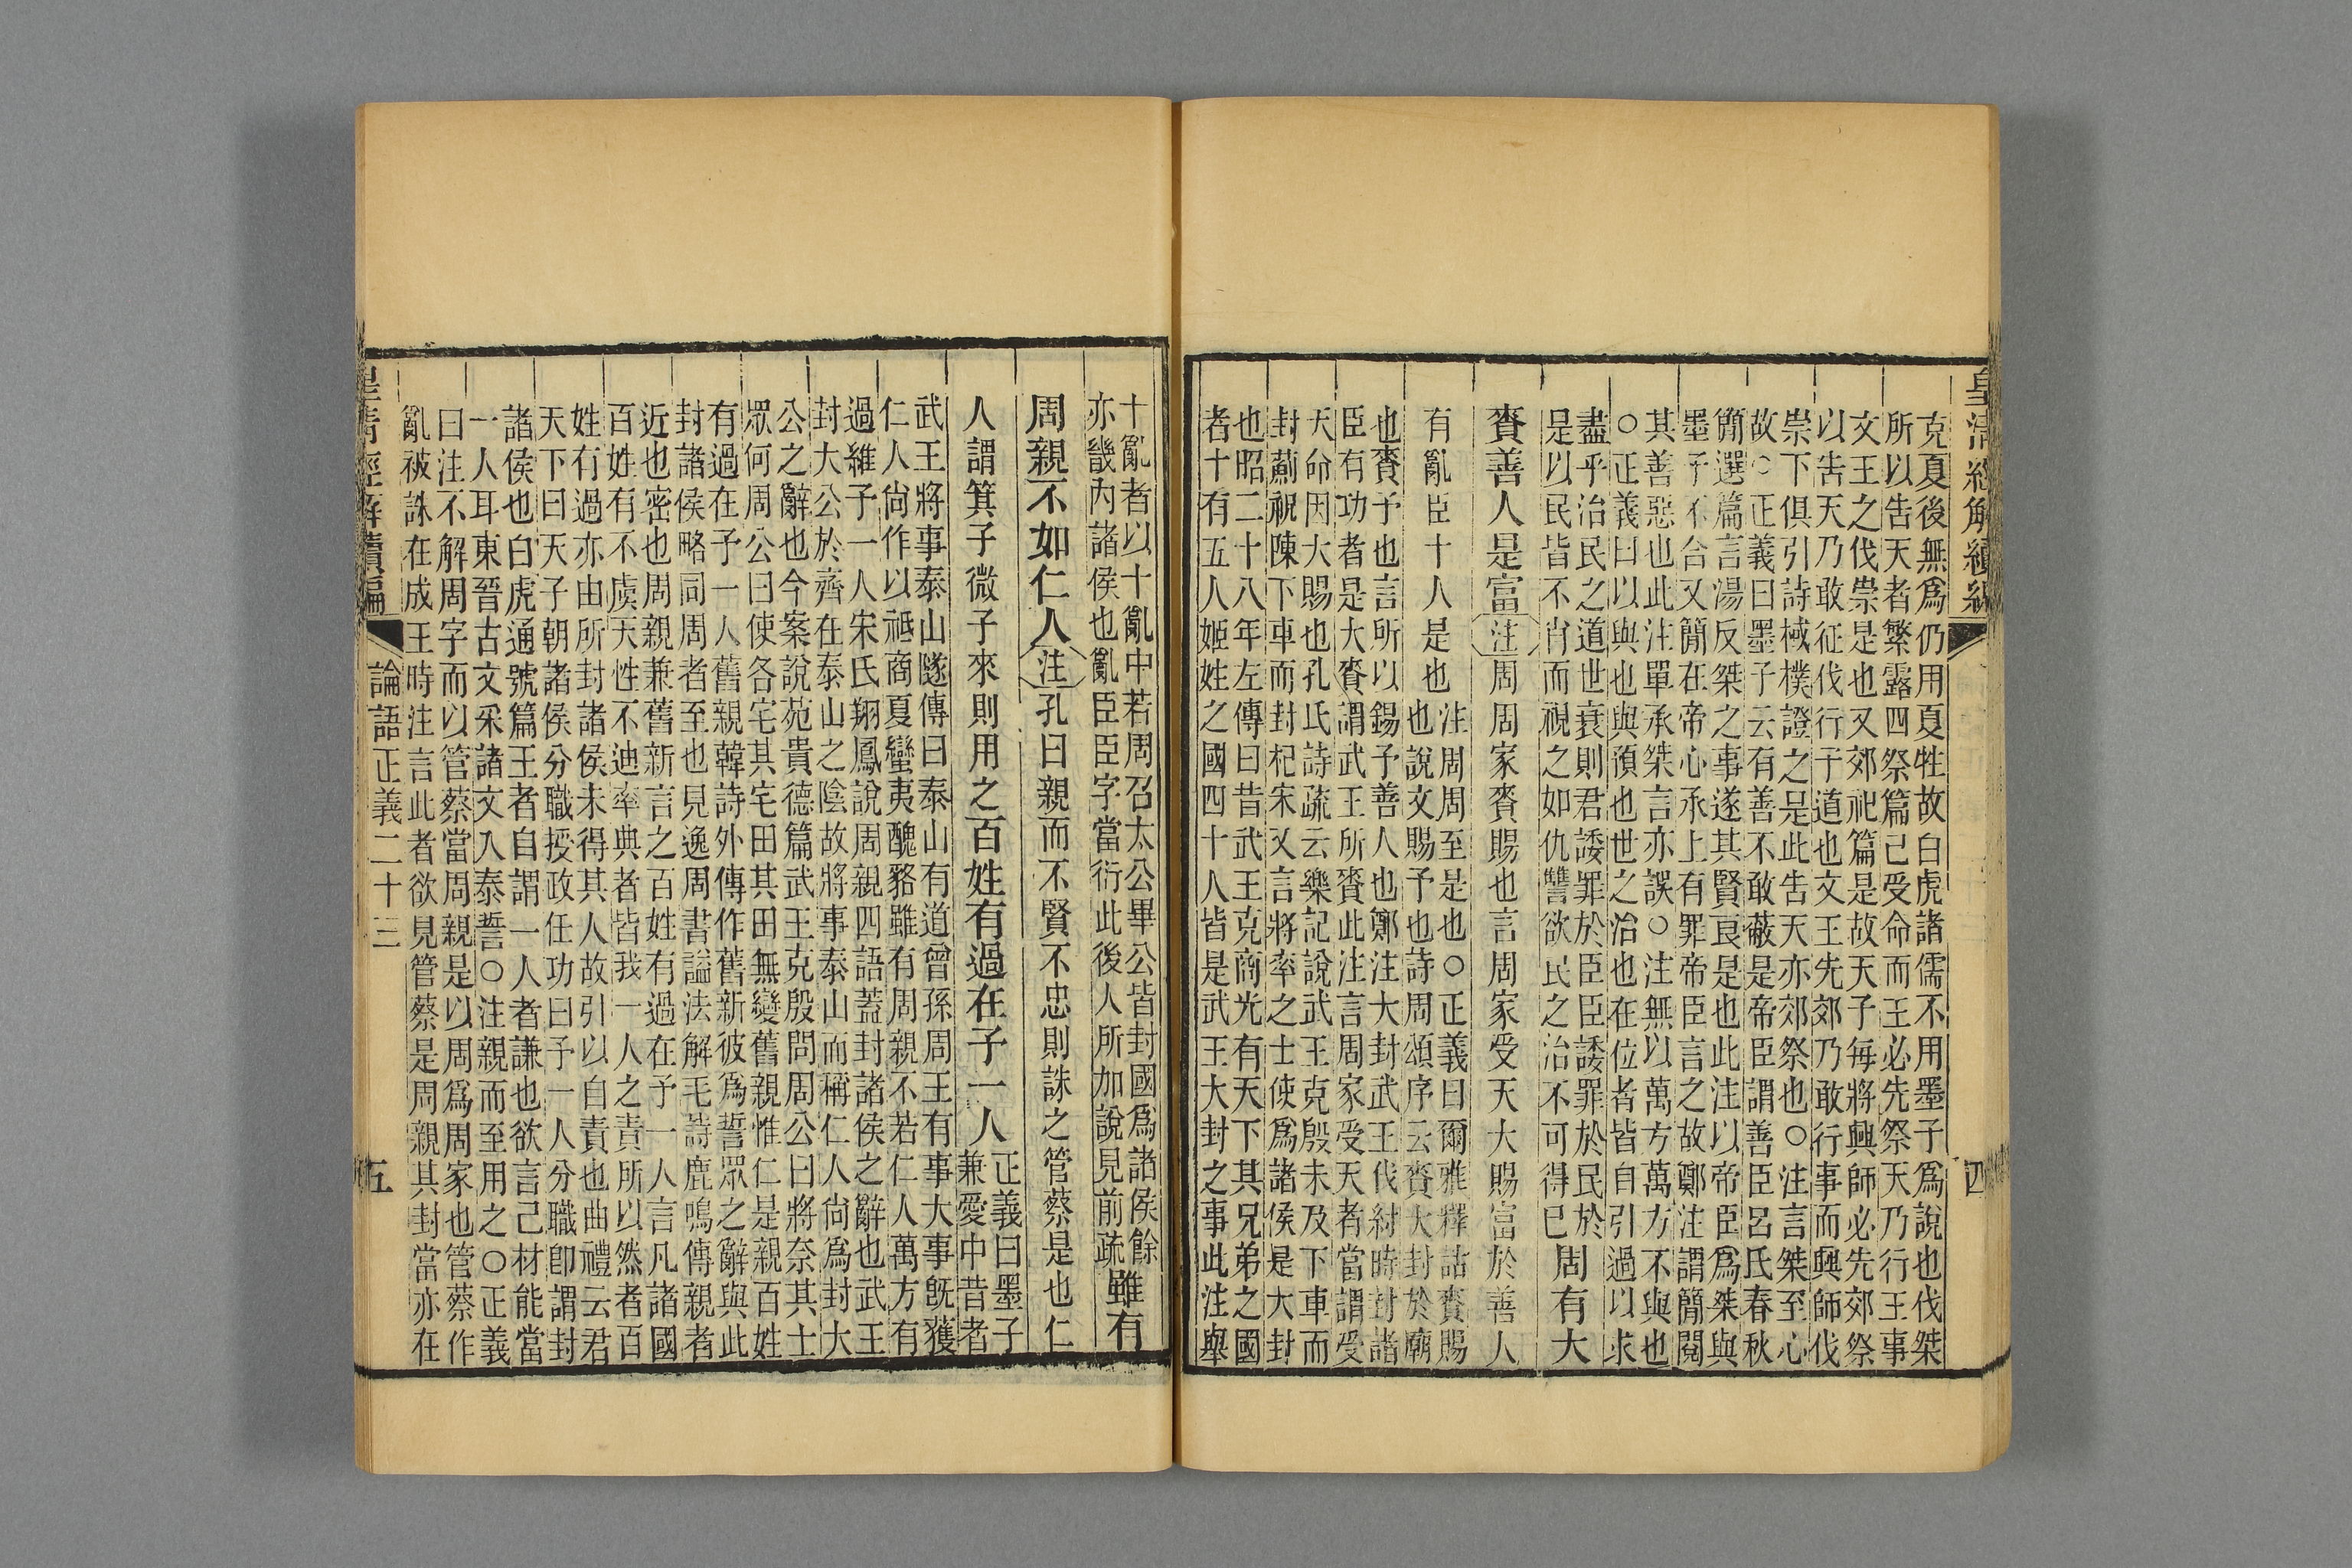 皇清經解續編
四
克夏後無爲仍用夏牲故白虎諸儒不用墨子爲說也伐桀
所以告天者繁露四祭篇已受命而王必先祭天乃行王事
文王之伐崇是也又郊祀篇是故天子每將興師必先郊祭
以告天乃敢征伐行于道也文王先郊乃敢行事而興師伐
崇下俱引詩棫樸證之是此告天亦郊祭也○注言桀至心
故○正義曰墨子云有善不敢蔽是帝臣謂善臣呂氏春秋
簡選篇言湯反桀之事遂其賢良是也此注以帝臣爲桀與
墨子不合又簡在帝心承上有罪帝臣言之故鄭注謂簡閱
其善惡也此注單承桀言亦誤○注無以萬方萬方不與也
○正義曰以與也與預也世之治也在位者皆自引過以求
盡乎治民之道世衰則君諉罪於臣臣諉罪於民於
是以民皆不肖而視之如仇讐欲民之治不可得已
周有大
賚善人是富注周周家賚賜也言周家受天大賜富於善人
有亂臣十人是也
注周周至是也○正義曰爾雅釋詁賚賜
也說文賜予也詩周頌序云賚大封於廟
也賚予也言所以錫予善人也鄭注大封武王伐紂時封諸
臣有功者是大賚謂武王所賚此注言周家受天者當謂受
天命因大賜也孔氏詩疏云樂記說武王克殷未及下車而
封薊祝陳下車而封杞宋又言將率之士使爲諸侯是大封
也昭二十八年左傳曰昔武王克商光有天下其兄弟之國
者十有五人姬姓之國四十人皆是武王大封之事此注舉
十亂者以十亂中若周召太公畢公皆封國爲諸侯餘
亦畿內諸侯也亂臣臣字當衍此後人所加說見前疏
雖有
周親不如仁人注孔曰親而不賢不忠則誅之管蔡是也仁
人謂箕子微子來則用之百姓有過在予一人
正義曰墨子
兼愛中昔者
武王將事泰山隧傳曰泰山有道曾孫周王有事大事旣獲
仁人尙作以祗商夏蠻夷醜貉雖有周親不若仁人萬方有
過維予一人宋氏翔鳳說周親四語蓋封諸侯之辭也武王
封大公於齊在泰山之陰故將事泰山而稱仁人尙爲封大
公之辭也今案說苑貴德篇武王克殷問周公曰將奈其士
眾何周公曰使各宅其宅田其田無變舊親惟仁是親百姓
有過在予一人舊親韓詩外傳作舊新彼爲誓眾之辭與此
封諸侯略同周者至也見逸周書謚法解毛詩鹿鳴傳親者
近也密也周親兼舊新言之百姓有過在予一人言凡諸國
百姓有不虞天性不迪率典者皆我一人之責所以然者百
姓有過亦由所封諸侯未得其人故引以自責也曲禮云君
天下曰天子朝諸侯分職授政任功曰予一人分職卽謂封
諸侯也白虎通號篇王者自謂一人者謙也欲言己材能當
一人耳東晉古文采諸文入泰誓○注親而至用之○正義
曰注不解周字而以管蔡當周親是以周爲周家也管蔡作
亂被誅在成王時注言此者欲見管蔡是周親其封當亦在
皇清經解續編
論語正義二十三
五